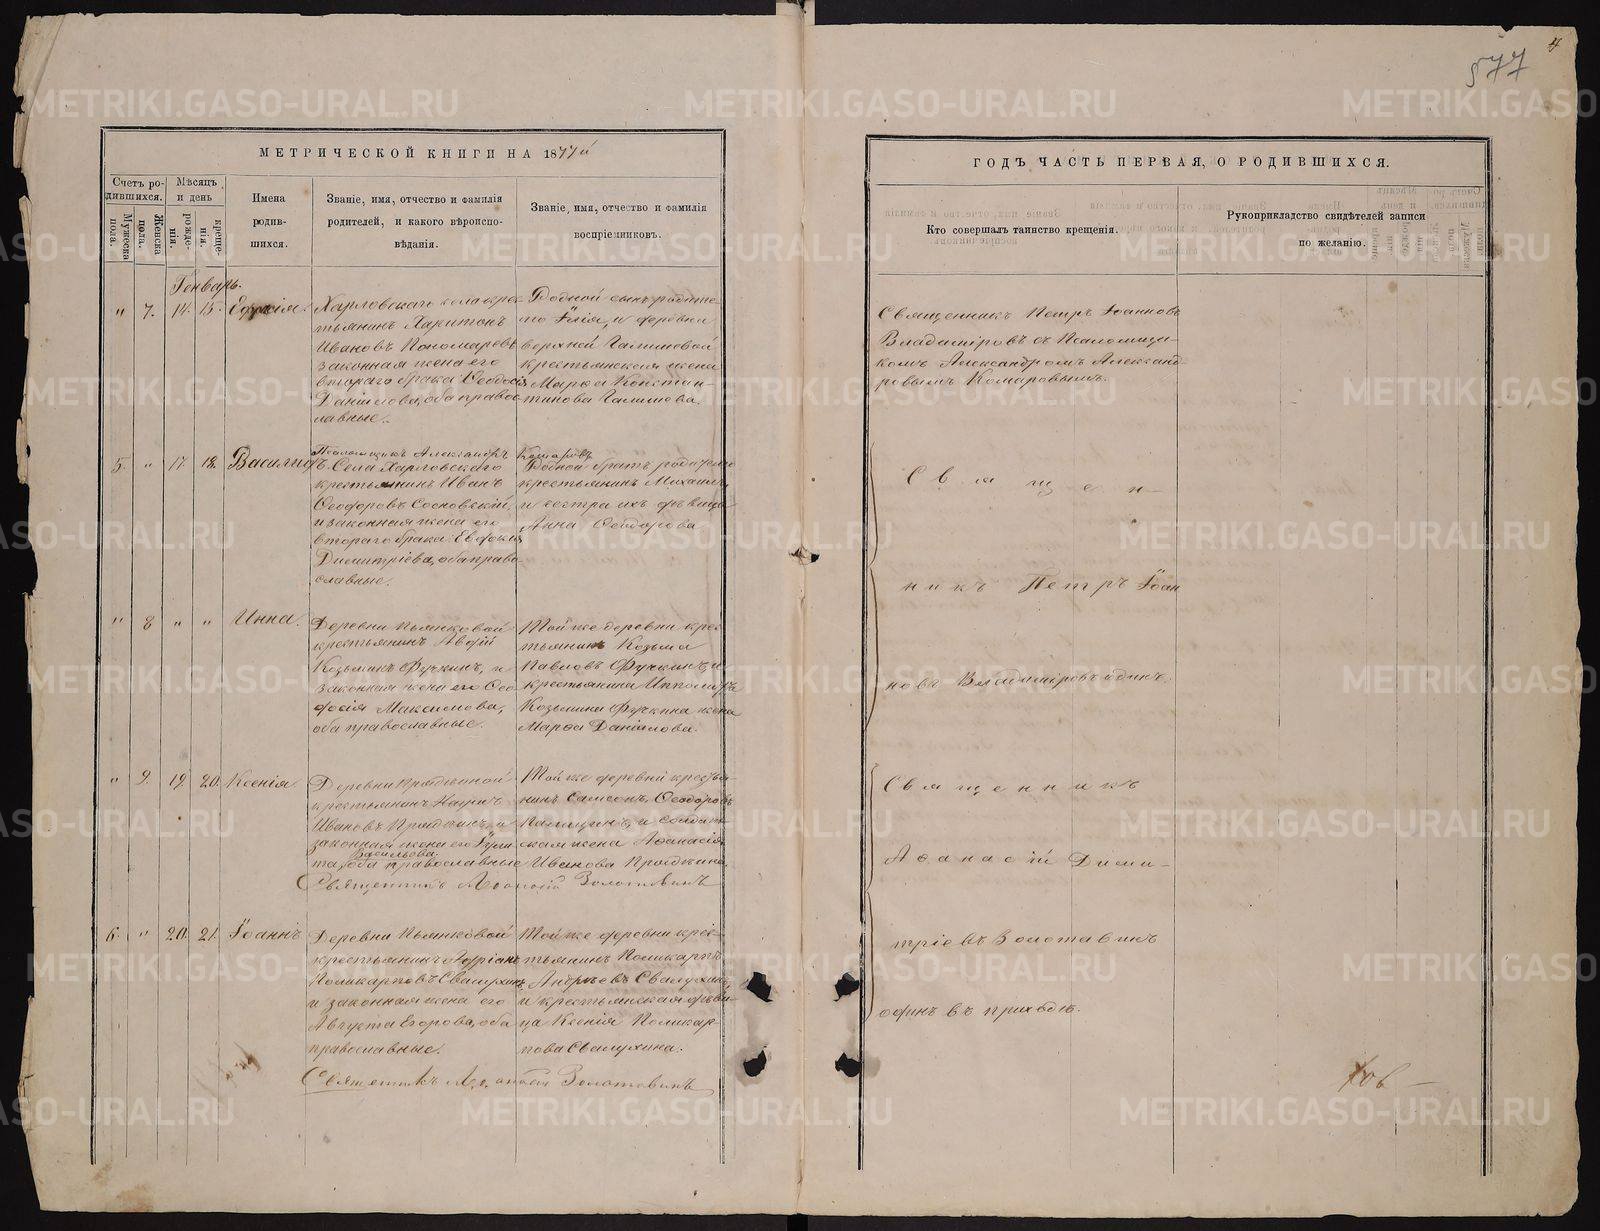 4
877
МЕТРИЧЕСКОЙ КНИГИ НА 1877й
Счетъ ро-
дившихся.
Мужеска
пола.
Женска
пола.
Мѣсяцъ
и день
рожде-
нія.
креще-
нія.
Имена
родив-
шихся.
Званіе, имя, отчество и фамилія
родителей, и какого вѣроиспо-
вѣданія.
Званіе, имя, отчество и фамилія
воспріемниковъ.
Генварь.
" 7. 14. 15.
Харловскаго села крес
тьянинъ Харитонъ
Ивановъ Пономаревъ
законная жена его
втораго брака Ѳеодосія
Даніилова, оба право-
славные.
Родной сынъ родите-
Илія, и деревни
верхней Галишовой
крестьянская жена
Марѳа Констан-
тинова Галишова.
5. " 17. 18. Василій
Псаломщикъ Александръ Комаровъ
Села Харловскаго
крестьянинъ Иванъ
Ѳеодоровъ Сосновскій,
и законная жена его
втораго брака Евдокія
Димитріева, оба право-
славные.
Родной братъ родителя
крестьянинъ Михаилъ
и сестра ихъ дѣвица
Анна Ѳеодорова
" 8 " " Инна.
Деревни Пьянковой
крестьянинъ
Козьминъ Фучкинъ, и
законная жена его Ѳео
досія Максимова,
оба православные.
Той же деревни крес
тьянинъ Козьма
Павловъ Фучкинъ, и
крестьянина
Козьмина Фучкина жена
Марѳа Даніилова.
" 9. 19. 20. Ксенія.
Деревни
крестьянинъ
Ивановъ и
законная жена его
Васильева
оба православные
Той же деревни крестья-
нинъ Самсонъ Ѳеодоровъ
и солдат-
ская жена Аѳанасія
Иванова
Священникъ Аѳанасій Золотавинъ
6. " 20. 21. Іоаннъ
Деревни Пьянковой
крестьянинъ Адріанъ
Поликарповъ Свалухинъ
и законная жена его
Августа Егорова, оба
православные.
Той же деревни крес-
тьянинъ Поликарпъ
Андреевъ Свалухинъ
и крестьянская дѣви-
ца Ксенія Поликар-
пова Свалухина.
Священникъ Аѳанасій Золотавинъ
ГОДЪ ЧАСТЬ ПЕРВАЯ, О РОДИВШИХСЯ.
Кто совершалъ таинство крещенія.
Рукоприкладство свидѣтелей записи
по желанію.
Священникъ Петръ Іоанновъ
Владиміровъ съ Псаломщи-
комъ Александромъ Александ-
ровымъ Комаровымъ.
Священ-
никъ Петръ Іоан
новъ Владиміровъ одинъ.
Священникъ
Аѳанасій Дими-
тріевъ Золотавинъ
одинъ въ приходѣ.